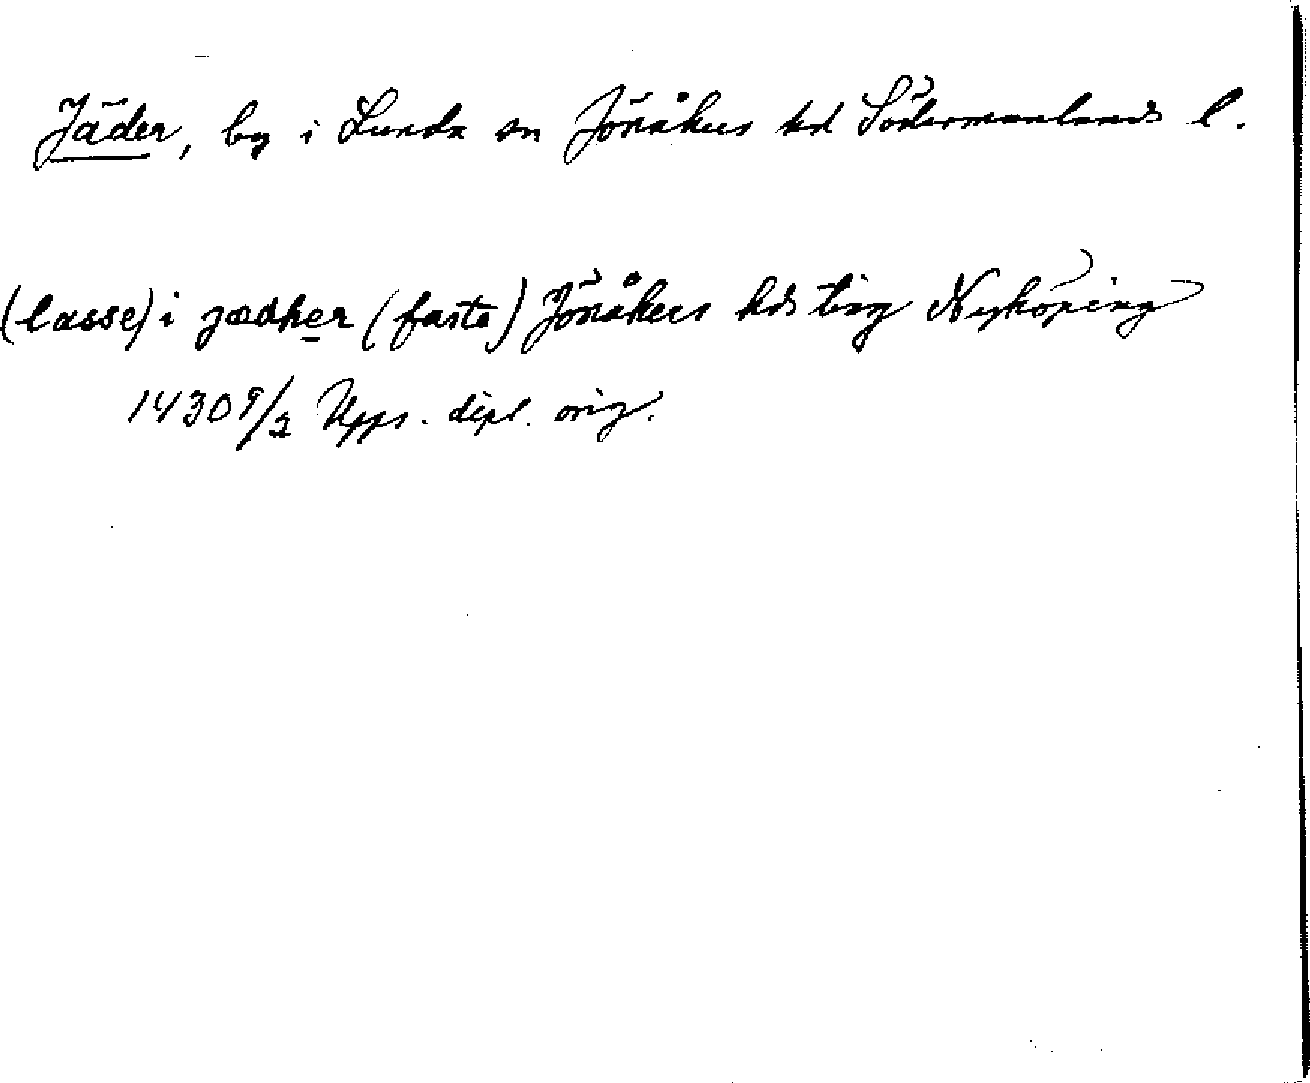 Jäder, by i Lunda sn Jönåkers hd Södermanlands l.
(lasse) i jædher (fasta) Jönåkers hds ting Nyköping
1430 9/2 Upps. dipl. orig.